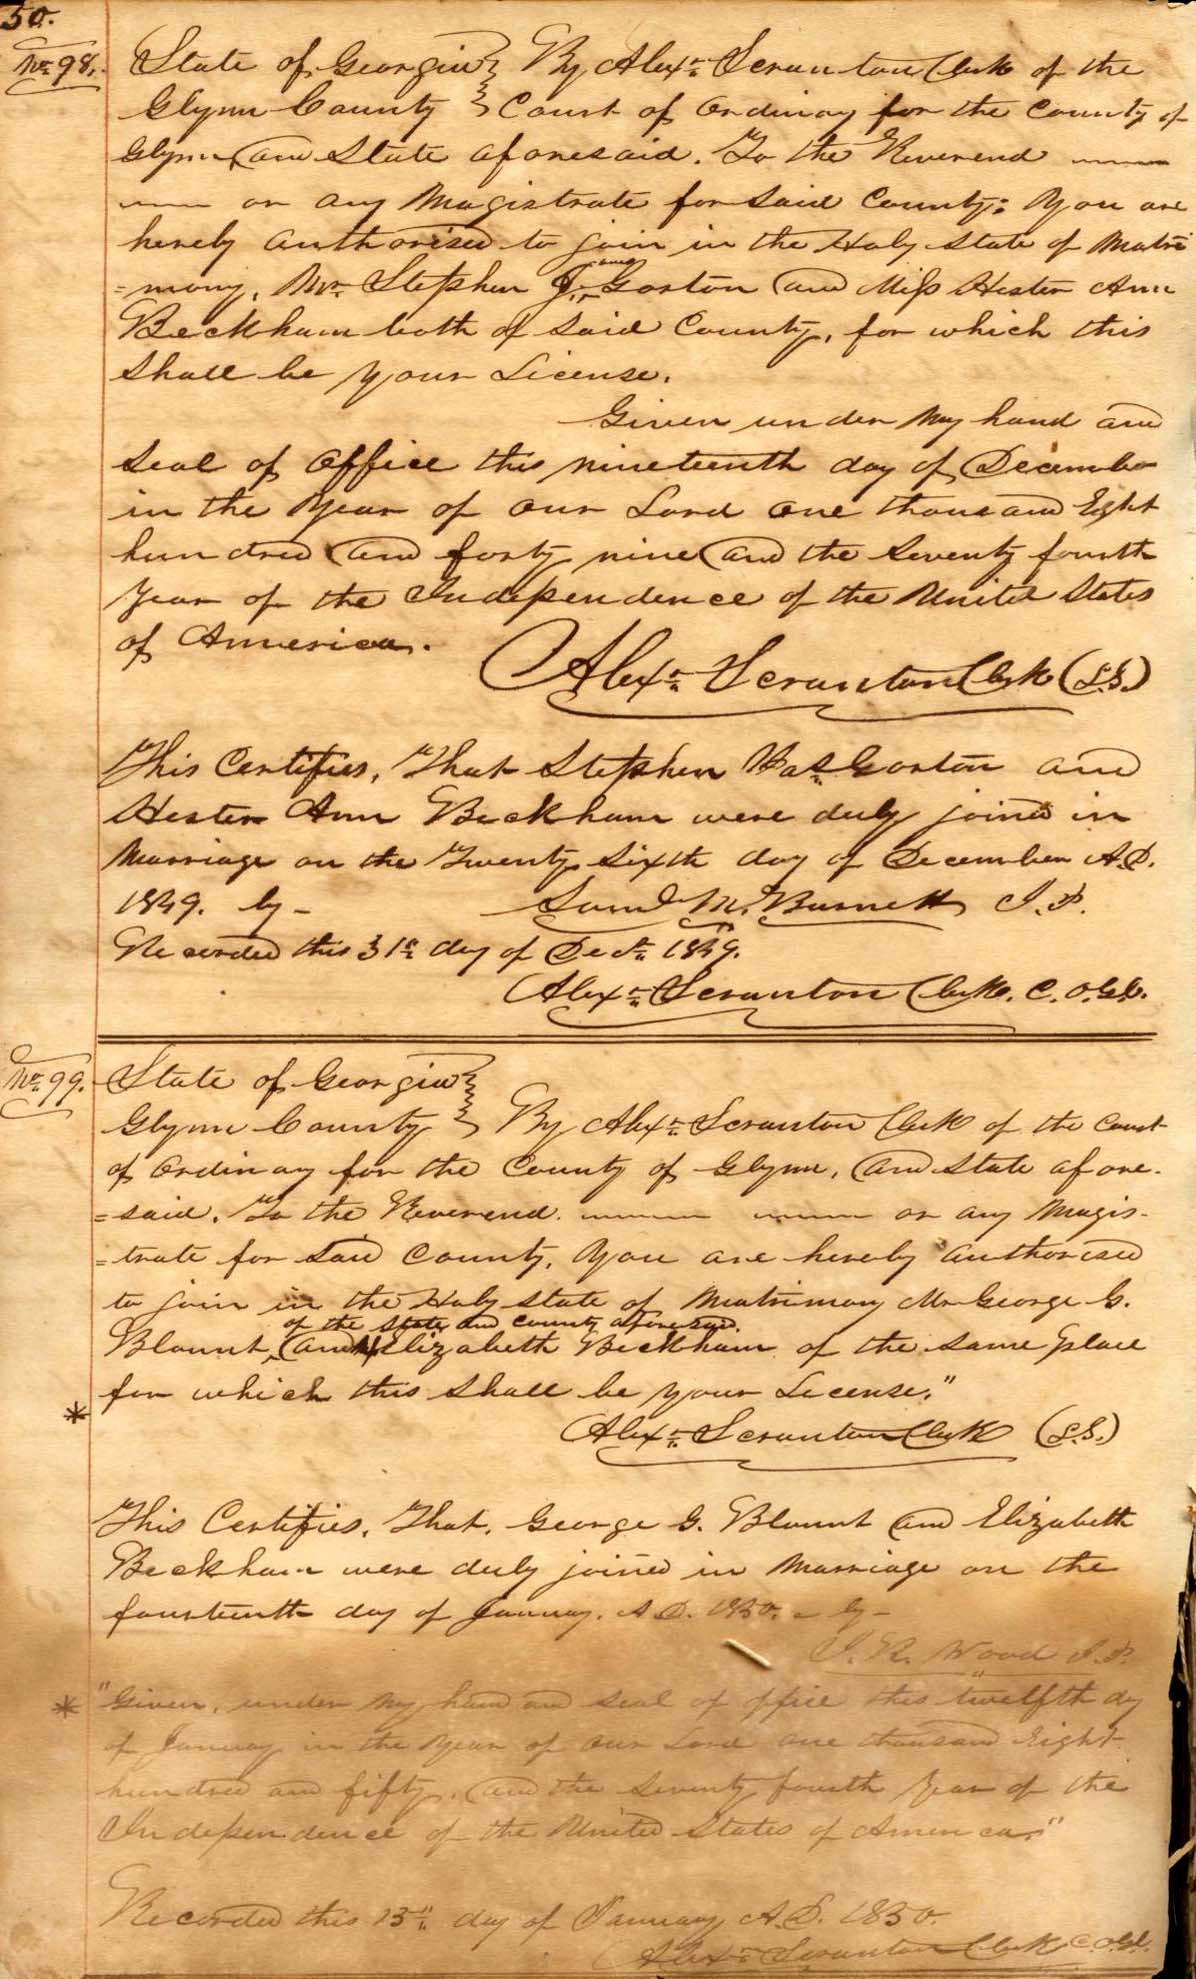 50.
No. 98. State of Georgia } By Alexr. Scranton Clerk of the
Glynn County } Court of Ordinary for the County of
Glynn, and State aforesaid. To the Reverend
or any Magistrate for said County; You are
hereby authorised to join in the Holy State of Matri
=mony, Mr. Stephen Gorton and Miss Hester Ann
Beckham both of said County, for which this
shall be your License.
Given under my hand and
seal of office this nineteenth day of December
in the Year of our Lord one thousand Eight
hundred and forty nine and the seventy fourth
Year of the Independence of the United States
of America.
Alexr. Scranton Clerk (L.S.)
This Certifies, That Stephen Gorton and
Hester Ann Beckham were duly joined in
Marriage on the Twenty Sixth day of December A.D.
1849. by-
Saml M. Burnett J.P.
Recorded this 31st. day of Decr. 1849.
Alexr. Scranton Clerk. C.O.G.C.
No. 99. State of Georgia }
Glynn County } By Alexr. Scranton Clerk of the Court
of Ordinary for the County of Glynn, and State afore-
=said. To the Reverend. or any Magis-
=trate for said County, You are hereby authorised
to join in the Holy state of Matrimony Mr George G.
of the State and County aforesaid.
Blount, and Elizabeth Beckham of the same place
for which this shall be your License."
*
Alexr. Scranton Clerk (L.S.)
This Certifies, That, George G. Blount and Elizabeth
Beckham were duly joined in Marriage on the
fourteenth day of January, A.D. 1850. - by-
J.R. Wood J.P.
* "Given, under my hand and seal of office this twelfth day
of January in the Year of our Lord one thousand Eight
hundred and fifty, and the seventy fourth Year of the
Independence of the United States of America."
Recorded this 15th. day of January A.D. 1850.
Alexr. Scranton Clerk C.O.G.C.